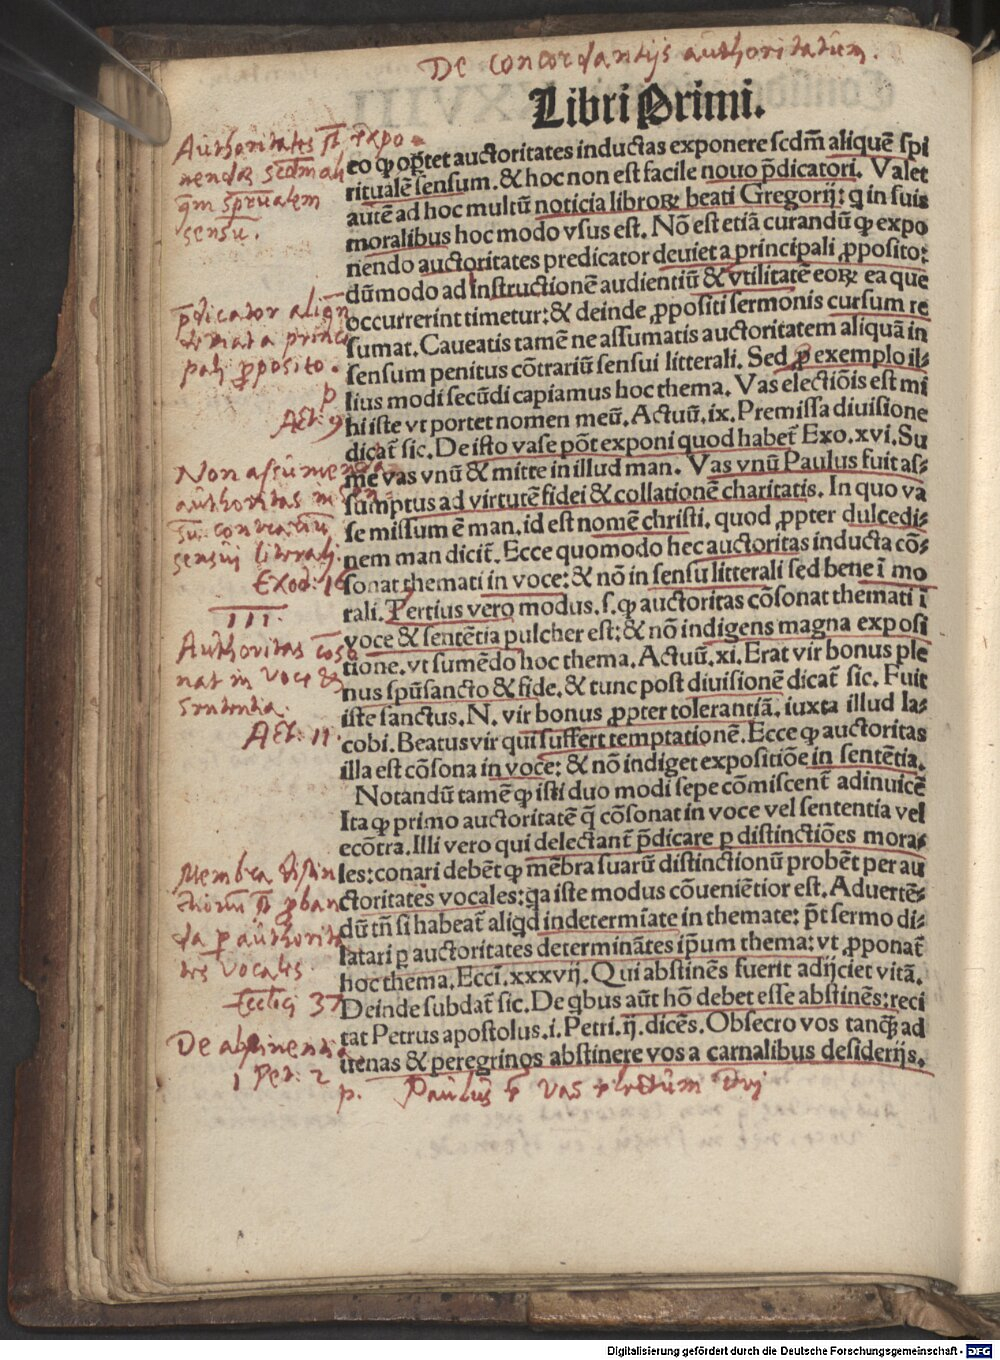 De concordantijs authoritatum.
Libri Primi.
Authoritates sũt expo
nendas scdm ali
quẽ spũalem
sensũ.
eo ꝙ oꝑtet auctoritates inductas exponere scdm̃ aliquẽ spi
ritualẽ sensum. & hoc non est facile nouo p̃dicatori. Valet
autẽ ad hoc multũ noticia libroꝝ beati Gregorij: q in suis
moralibus hoc modo vsus est. Nõ est etiã curandũ ꝙ expo
nendo auctoritates predicator deuiet a principali ꝓposito:
dũmodo ad instructionẽ audientiũ & vtilitatẽ eoꝝ ea que
occurrerint timetur: & deinde ꝓpositi sermonis cursum re
sumat. Caueatis tamẽ ne assumatis auctoritatem aliquã in
sensum penitus cõtrariũ sensui litterali. Sed ꝑ exemplo il-
lius modi secũdi capiamus hoc thema. Vas electiõis est mi
hi iste vt portet nomen meũ. Actuũ. ix. Premissa diuisione
dicat̃ sic. De isto vase põt exponi quod habet̃ Exo. xvi. Su
me vas vnũ & mitte in illud man. Vas vnũ Paulus fuit as-
sumptus ad virtutẽ fidei & collationẽ charitatis. In quo va
se missum ẽ man. id est nomẽ christi. quod ꝓpter dulcedi-
nem man dicit̃. Ecce quomodo hec auctoritas inducta cõ-
sonat themati in voce: & nõ in sensu litterali sed bene ĩ mo
rali. Tertius vero modus. s. ꝙ auctoritas cõsonat themati ĩ
voce & sentẽtia pulcher est: & nõ indigens magna exposi
tione. vt sumẽdo hoc thema. Actuũ. xi. Erat vir bonus ple
nus spũsancto & fide. & tunc post diuisionẽ dicat̃ sic. Fuit
iste sanctus. N. vir bonus ꝓpter tolerantiã. iuxta illud Ia-
cobi. Beatus vir qui suffert temptationẽ. Ecce ꝙ auctoritas
illa est cõsona in voce: & nõ indiget expositiõe in sentẽtia.
Notandũ tamẽ ꝙ isti duo modi sepe cõmiscent̃ adinuicẽ
Ita ꝙ primo auctoritatẽ q̃ cõsonat in voce vel sententia vel
ecõtra. Illi vero qui delectant̃ p̃dicare ꝑ distinctiões mora-
les: conari debẽt ꝙ mẽbra suarũ distinctionũ probẽt per au
ctoritates vocales: qa iste modus cõueniẽtior est. Aduertẽ-
dũ tñ si habeat̃ aliqd indetermiate in themate: p̃t sermo di-
latari ꝑ auctoritates determinãtes ip̃um thema: vt ꝓponat̃
hoc thema. Ecci̇. xxxvij. Qui abstinẽs fuerit adijciet vitã.
Deinde subdat̃ sic. De qbus aũt hõ debet esse abstinẽs: reci
tat Petrus apostolus. i. Petri. ij. dicẽs. Obsecro vos tanq̃ ad
uenas & peregrinos abstinere vos a carnalibus desiderijs.
p̃dicator aliqñ
deuiat a princi
pali ꝓposito.
Act: 9
Non assumenda
authoritas in sen
sũ contrariũ
sensui literali.
Exod: 16
III.
Authoritas cõso
nat in voce &
sententia.
Act: 11.
Membra distin
ctionũ sũt ꝓban
da ꝑ authorita
tes vocales
Eccleci 37
De abstinentia
1 Pet: 2
p. Paulus ẽ vas electum dei
Digitalisierung gefördert durch die Deutsche Forschungsgemeinschaft - DFG